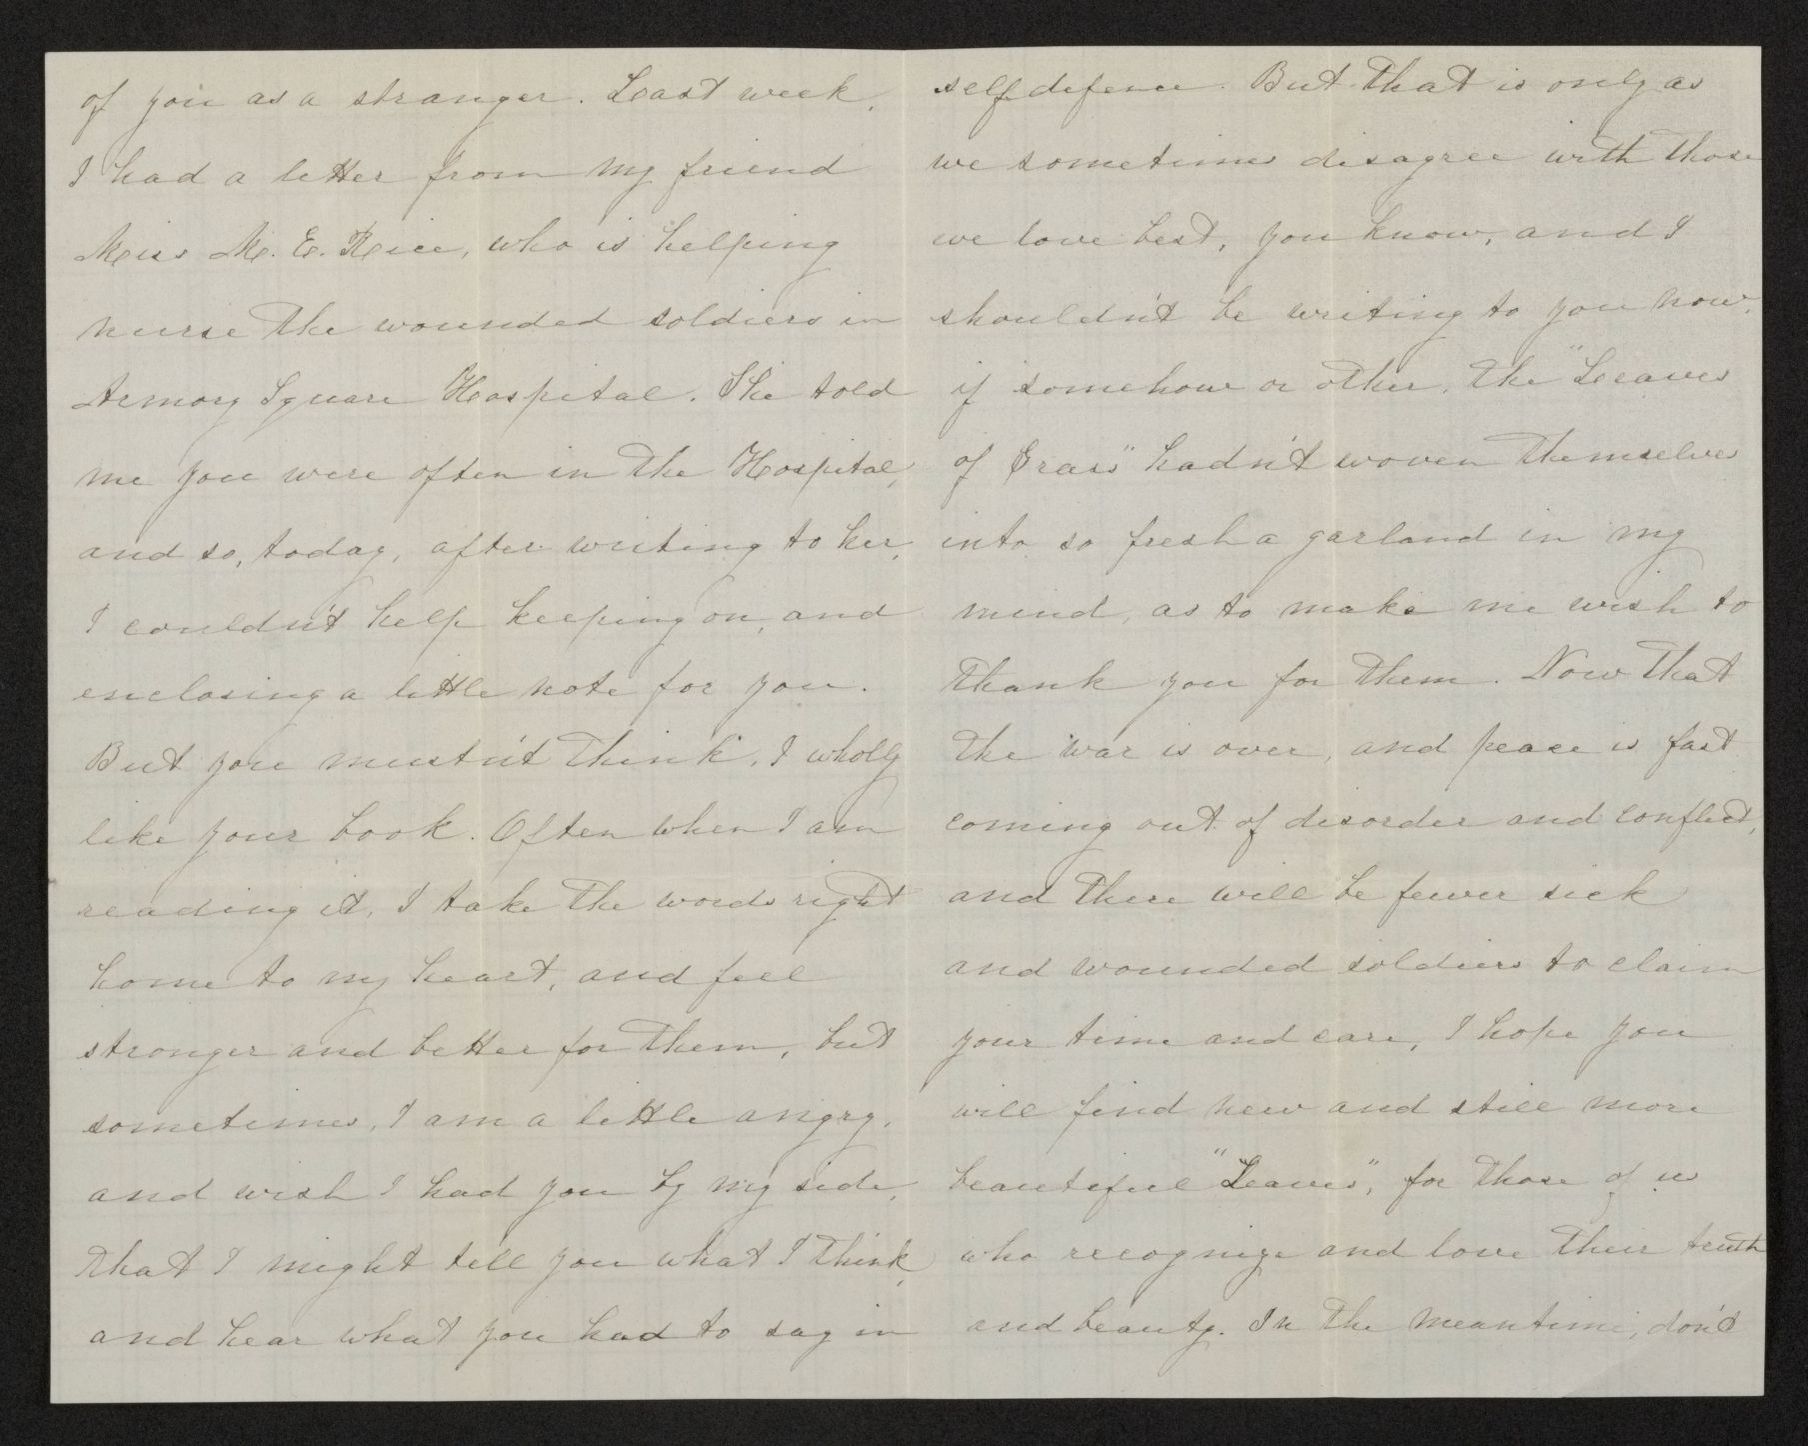 of you as a stranger. Last week,
I had a letter from my friend
Miss M. E. Rice, who is helping
nurse the wounded soldiers in
Armory Square Hospital. She told
me you were often in the Hospital,
and so, today, after writing to her,
I couldn't help keeping on, and
enclosing a little note for you.
But you mustn't think, I wholly
like your book. Often when I am
reading it, I take the words right
home to my heart, and feel
stronger and better for them, but
sometimes, I am a little angry,
and wish I had you by my side,
that I might tell you what I think,
and hear what you had to say in
self defence. But that is only as
we sometimes disagree with those
we love best, you know, and I
shouldn't be writing to you now,
if somehow or other, the "Leaves
of Grass" hadn't woven themselves
into so fresh a garland in my
mind, as to make me wish to
thank you for them. Now that
the war is over, and peace is fast
coming out of disorder and conflict,
and there will be fewer sick
and wounded soldiers to claim
your time and care, I hope you
will find new and still more
beautiful "Leaves", for those of us
who recognize and love their truth
and beauty. In the meantime, don't